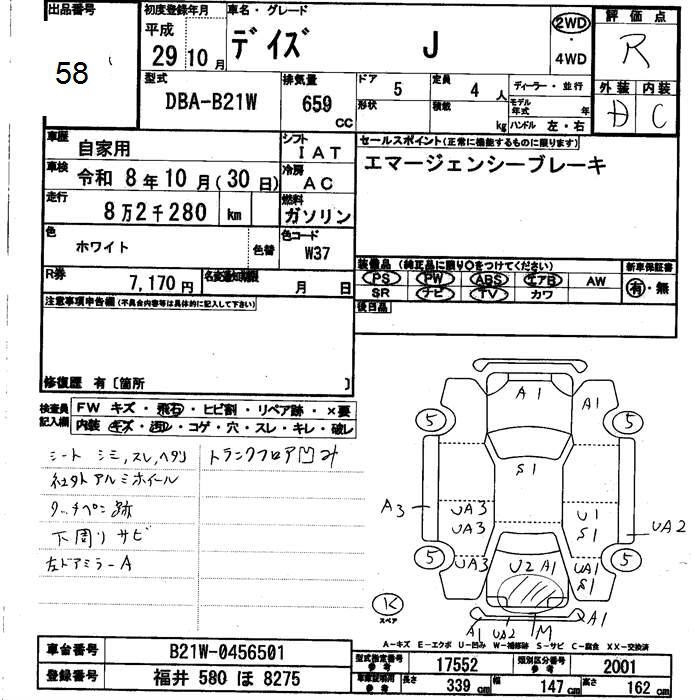 出品番号
58
初度登録年月
平成
29 10 月
車名・グレード
デイズ J
2WD
・
4WD
評価点
R
外装 内装
C
型式
DBA-B21W
排気量
659
CC
ドア 5
形状
定員 4 人
積載 kg
ディーラー・並行
モデル年式 年
ハンドル 左・右
車歴
自家用
シフト
IAT
車検
令和 8年10月(30日)
冷房
AC
走行
8万2千280 km
燃料
ガソリン
色
ホワイト
色替
色コード
W37
R券
7,170円
名変通知期限
月 日
セールスポイント(正常に機能するものに限ります)
エマージェンシーブレーキ
装備品 (純正品に限り○をつけてください)
PS PW ABS エアB AW
SR ナビ TV カワ
新車保証書
有・無
後日品
注意事項申告欄 (不具合内容等は具体的に記入して下さい)
修復歴 有〔箇所 〕
検査員
記入欄
FW キズ・飛石・ヒビ割・リペア跡・×要
内装 キズ・汚レ・コゲ・穴・スレ・キレ・破レ
シート シミ,スレ,ヘタリ
トランクフロア凹み
社外アルミホイール
タッチペン跡
下周りサビ
左ドアミラーA
A1
A1
5
5
S1
A3
UA3
UA3
U1
S1
UA2
5
UA3
U2 A1
UA1
S1
5
K
スペア
A1
UA2
M
A1
A-キズ E-エクボ U-凹み W-補修跡 S-サビ C-腐食 XX-交換済
車台番号
B21W-0456501
登録番号
福井 580 ほ 8275
型式指定番号
参考
17552
類別区分番号
参考
2001
車庫証明用
参考
長さ
339 cm
幅
147 cm
高さ
162 cm